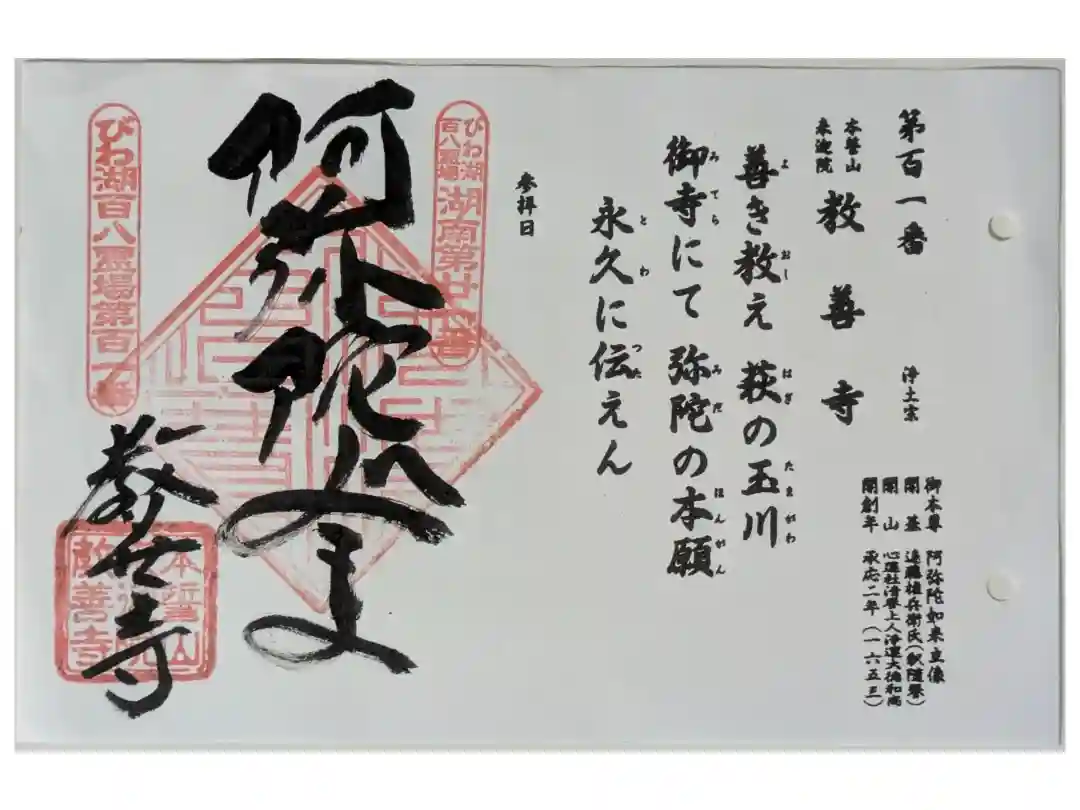 第百一番　浄土宗
本誓山
来迎院
教善寺
御本尊　阿弥陀如来立像
開基　遠藤権兵衛氏（釈随誉）
開山　心蓮社清誉上人浄運大徳和尚
開創年　承応二年（一六五三）
善き教え　萩の玉川
よ　おし　はぎ　たまがわ
御寺にて　弥陀の本願
みてら　みだ　ほんがん
永久に伝えん
とわ　つた
参拝日
びわ湖
百八霊場
湖南第廿番
阿弥陀如来
びわ湖百八霊場第百一番
教善寺
本誓山
来迎院
教善寺